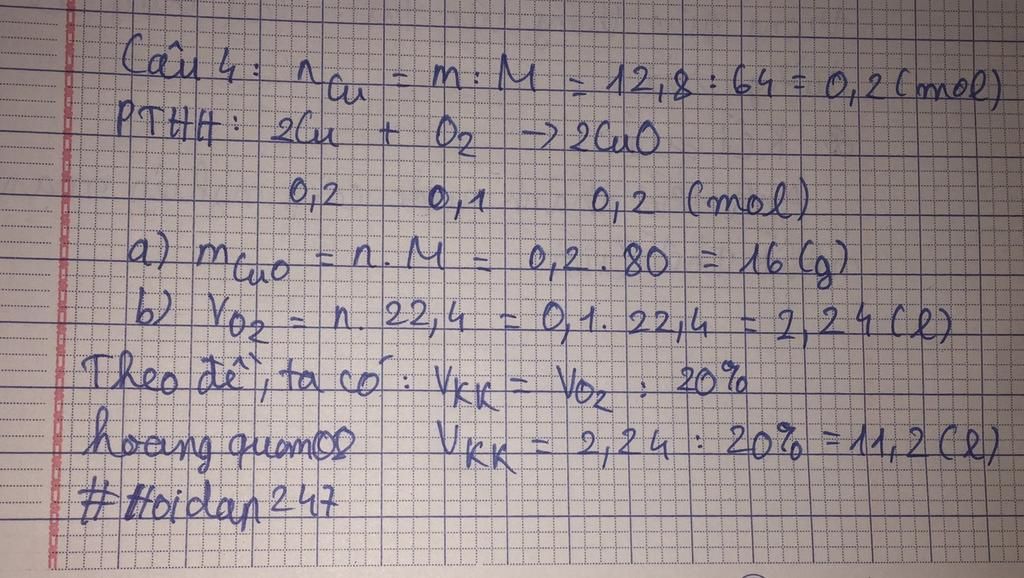 Câu 4: nCu = m : M = 12,8 : 64 = 0,2 (mol)
PTHH: 2Cu + O2 → 2CuO
0,2 0,1 0,2 (mol)
a) mCuO = n. M = 0,2 . 80 = 16 (g)
b) VO2 = n. 22,4 = 0,1. 22,4 = 2,24 (l)
Theo đề, ta có: VKK = VO2 : 20%
hoang VKK = 2,24 : 20% = 11,2 (l)
# Hoidap247